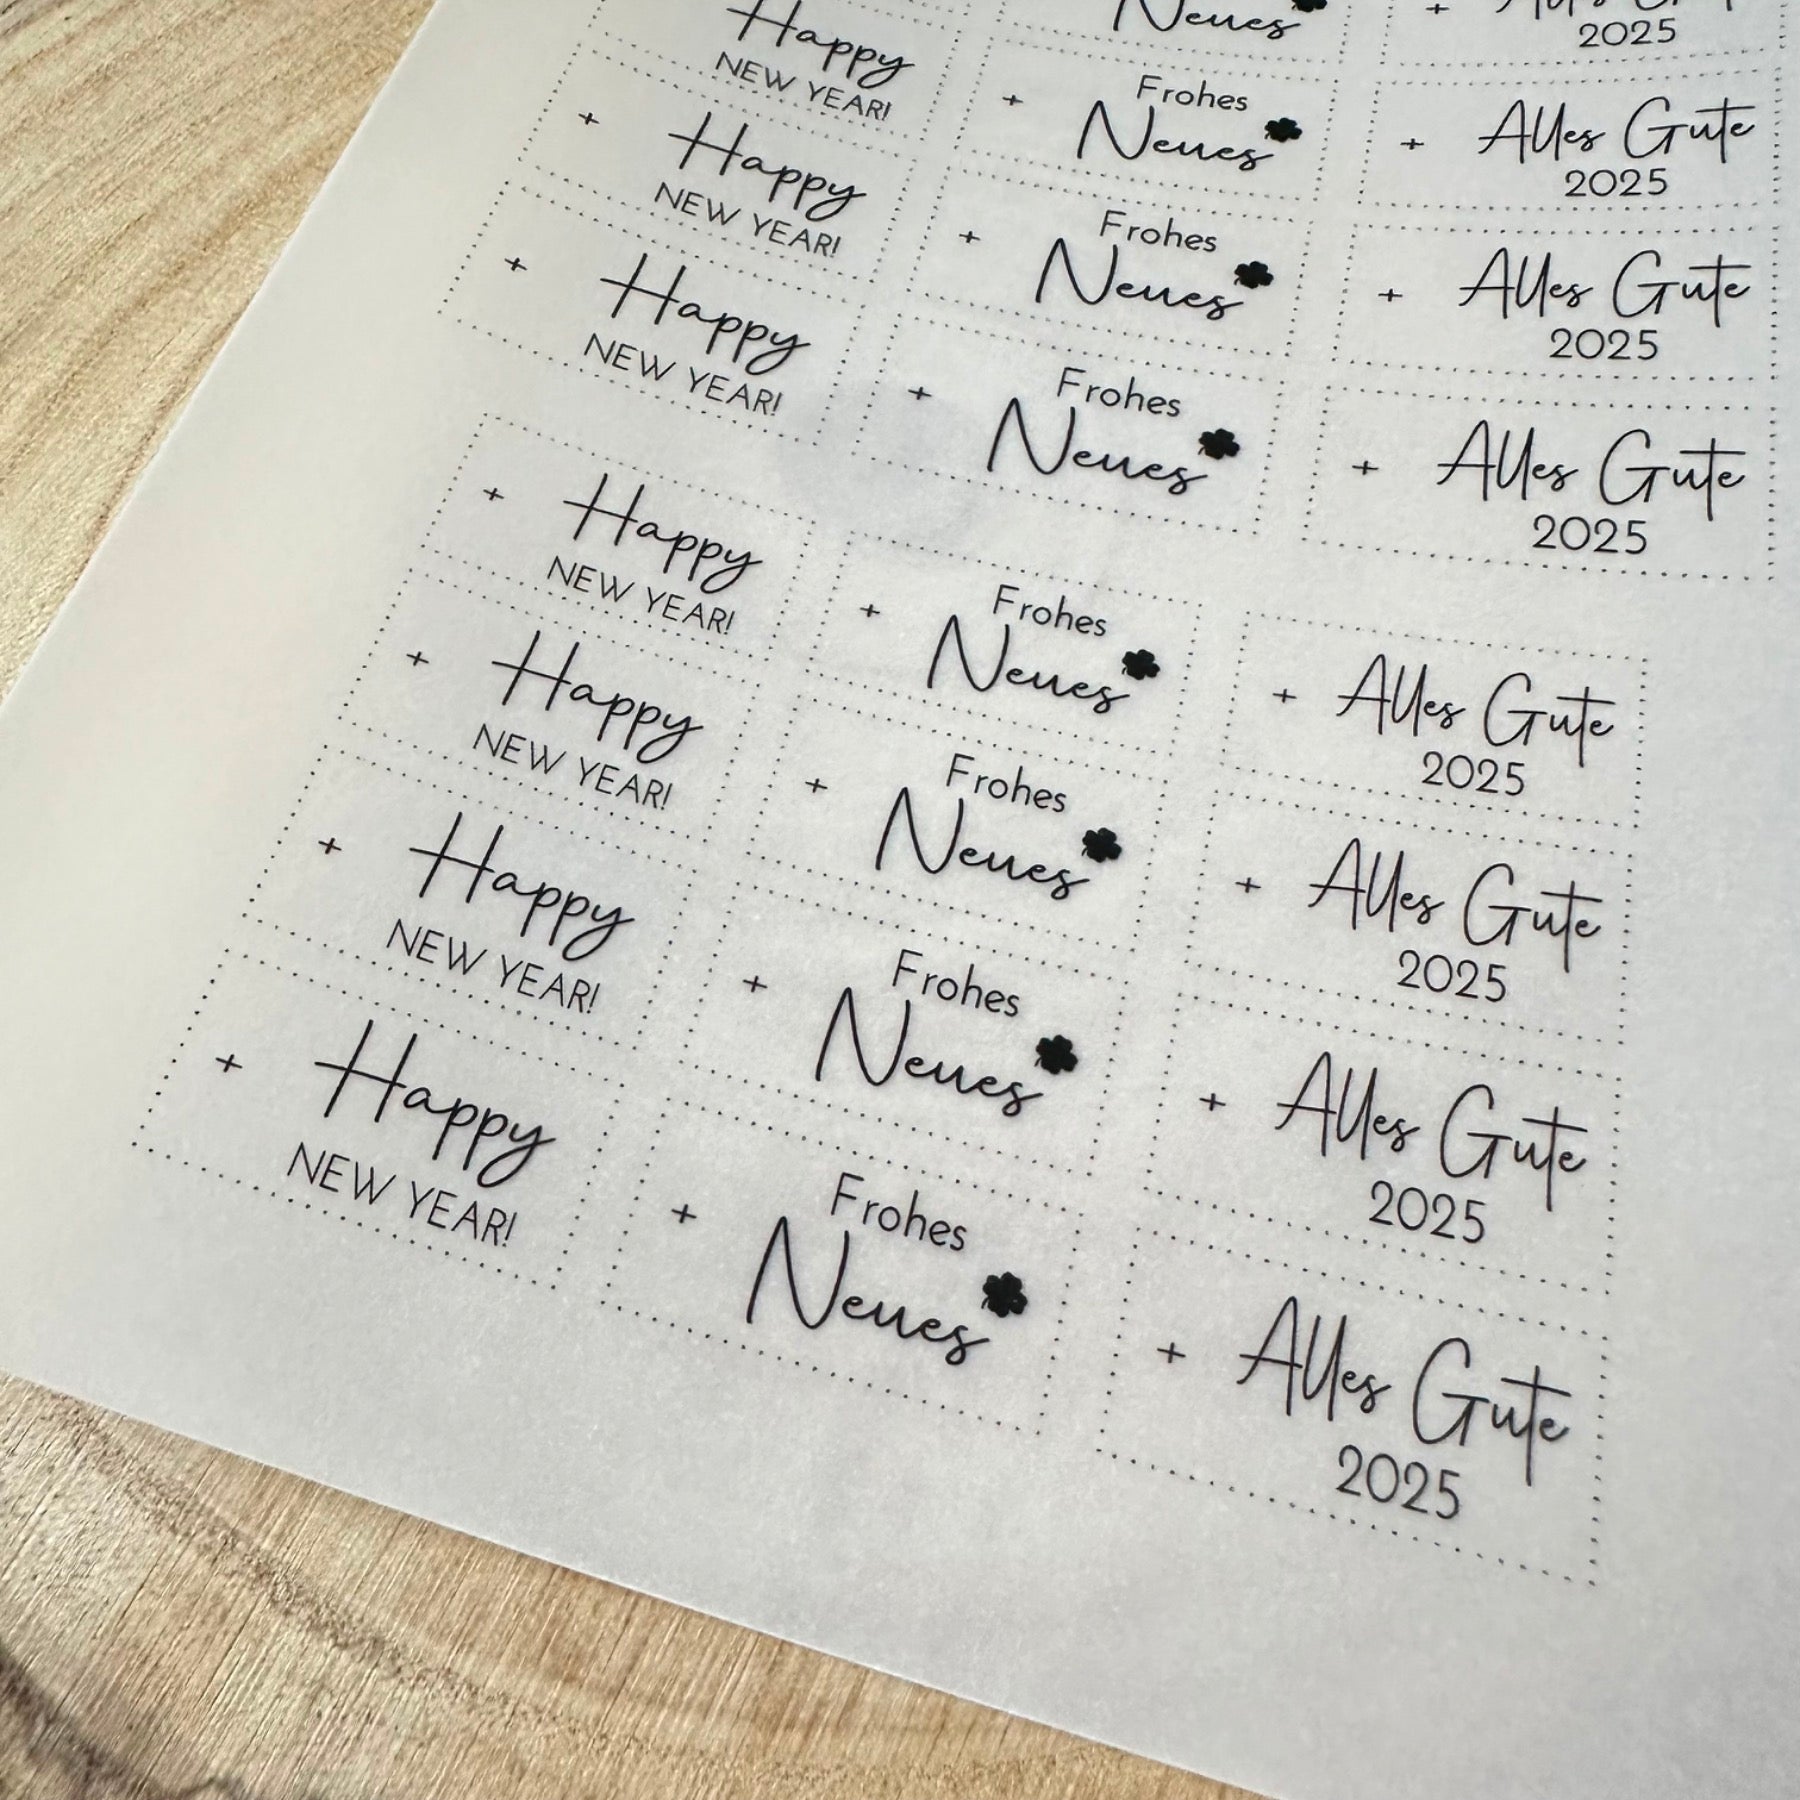 Neues
2025
Happy
NEW YEAR!
Frohes
Neues
Alles Gute
2025
Happy
NEW YEAR!
Frohes
Neues
Alles Gute
2025
Happy
NEW YEAR!
Frohes
Neues
Alles Gute
2025
Happy
NEW YEAR!
Frohes
Neues
Alles Gute
2025
Happy
NEW YEAR!
Frohes
Neues
Alles Gute
2025
Happy
NEW YEAR!
Frohes
Neues
Alles Gute
2025
Happy
NEW YEAR!
Frohes
Neues
Alles Gute
2025